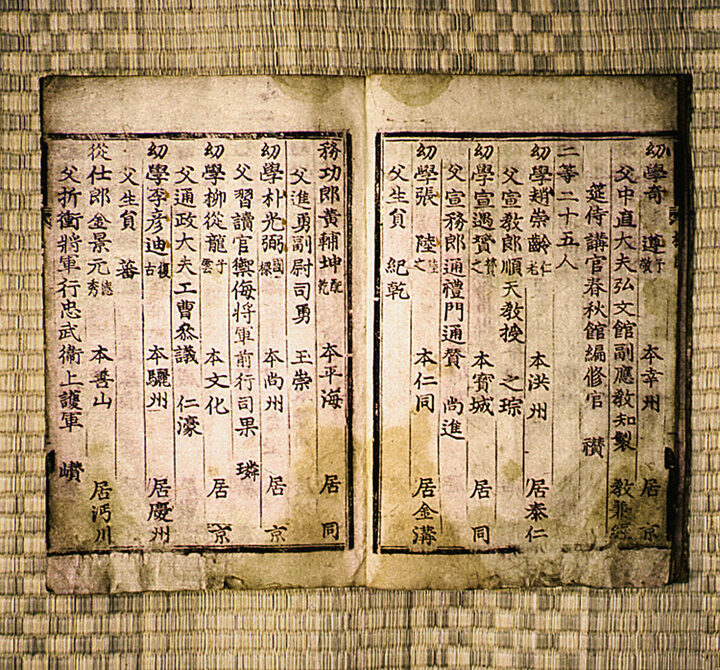 幼學奇 遵 子敬 本幸州 居京
父中直大夫弘文館副應教知製 教兼經
筵侍講官春秋館編修官 禶
二等二十五人
幼學趙崇齡 仁老 本洪州 居泰仁
父宣教郎順天教授 之琮
幼學宣遇贇 贇之 本寶城 居同
父宣務郎通禮門通贊 尚進
幼學張 陸 陸之 本仁同 居金溝
父生負 紀乾
務功郎黃輔坤 配乾 本平海 居同
父進勇副尉司勇 玉崇
幼學朴光弼 國樑 本尚州 居京
父習讀官禦侮將軍前行司果 璘
幼學柳從龍 子雲 本文化 居京
父通政大夫工曹叅議 仁濠
幼學李彦迪 復古 本驪州 居慶州
父生負 蕃
從仕郎金景元 德秀 本善山 居沔川
父折衝將軍行忠武衛上護軍 巑